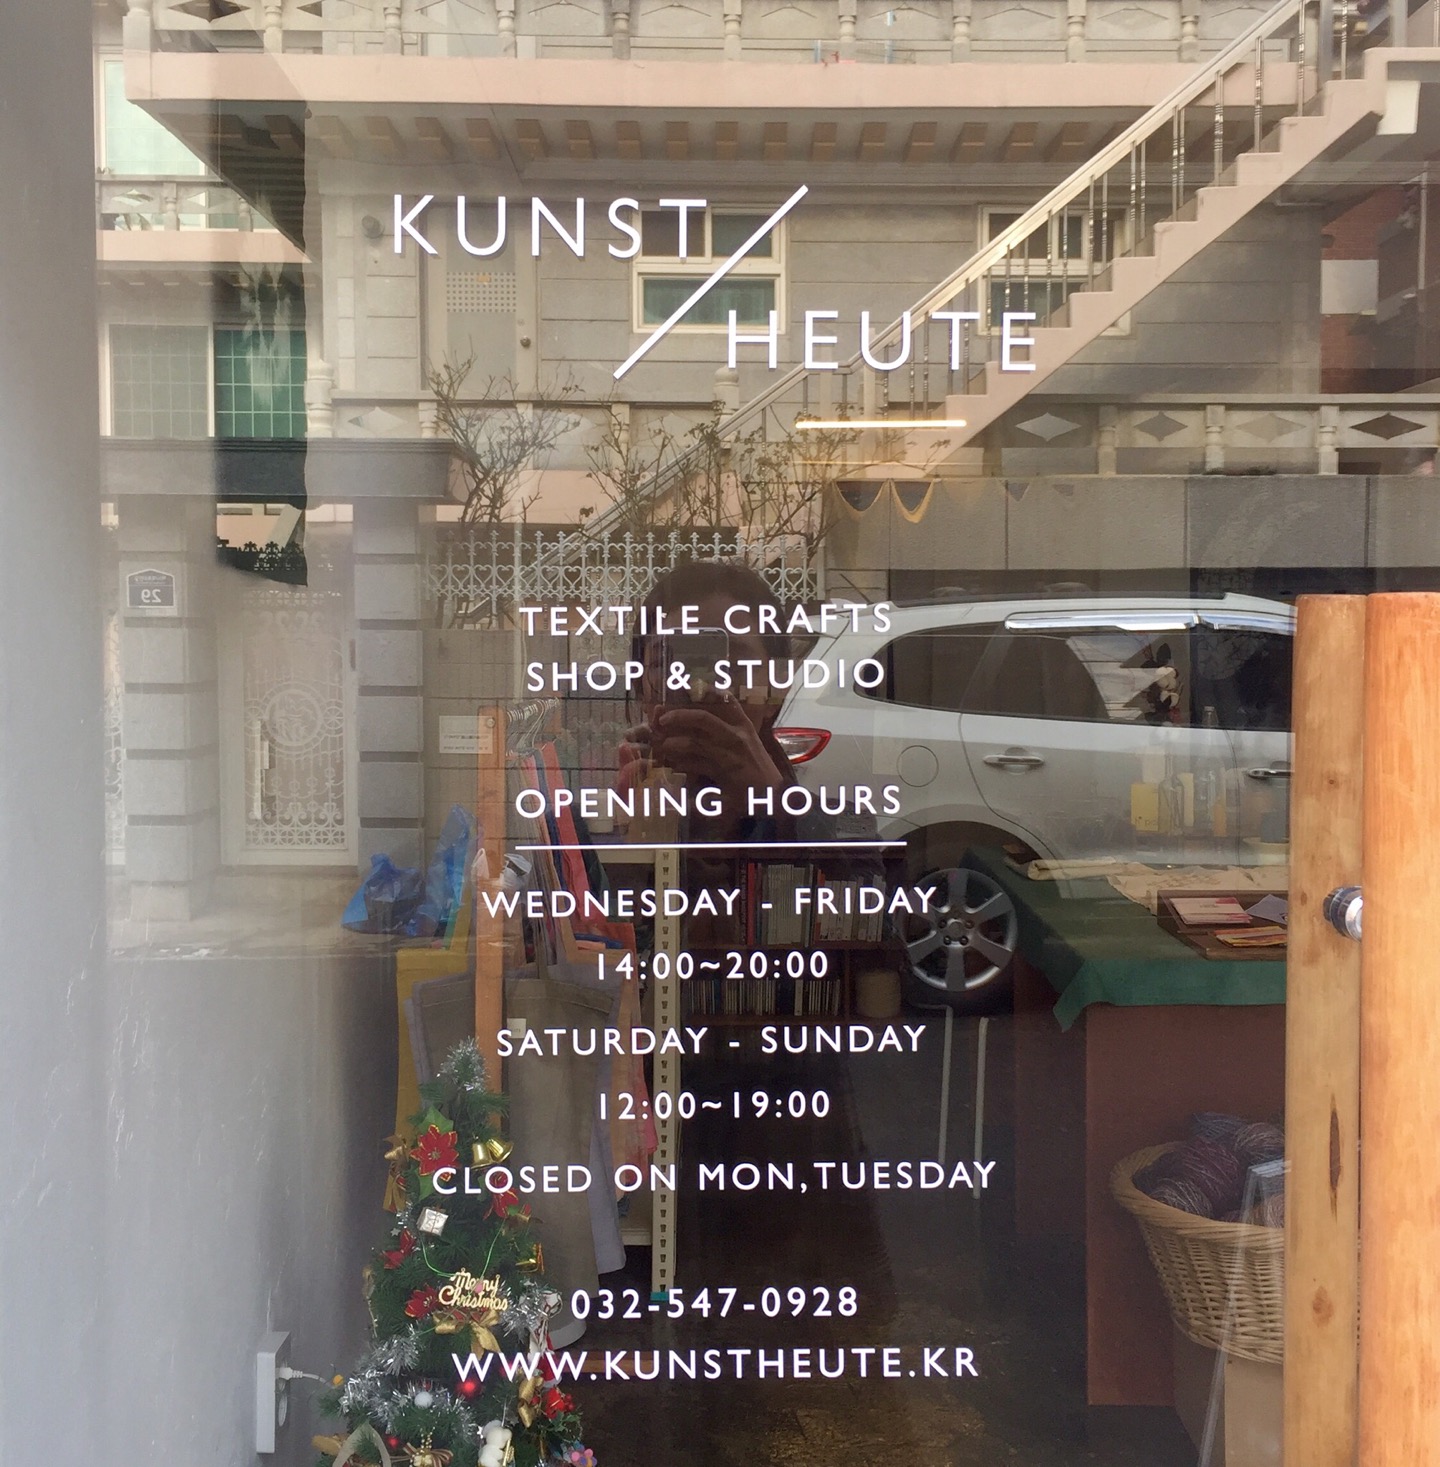 KUNST
HEUTE
TEXTILE CRAFTS
SHOP & STUDIO
OPENING HOURS
WEDNESDAY - FRIDAY
14:00~20:00
SATURDAY - SUNDAY
12:00~19:00
CLOSED ON MON,TUESDAY
032-547-0928
WWW.KUNSTHEUTE.KR
Merry
Christmas
29